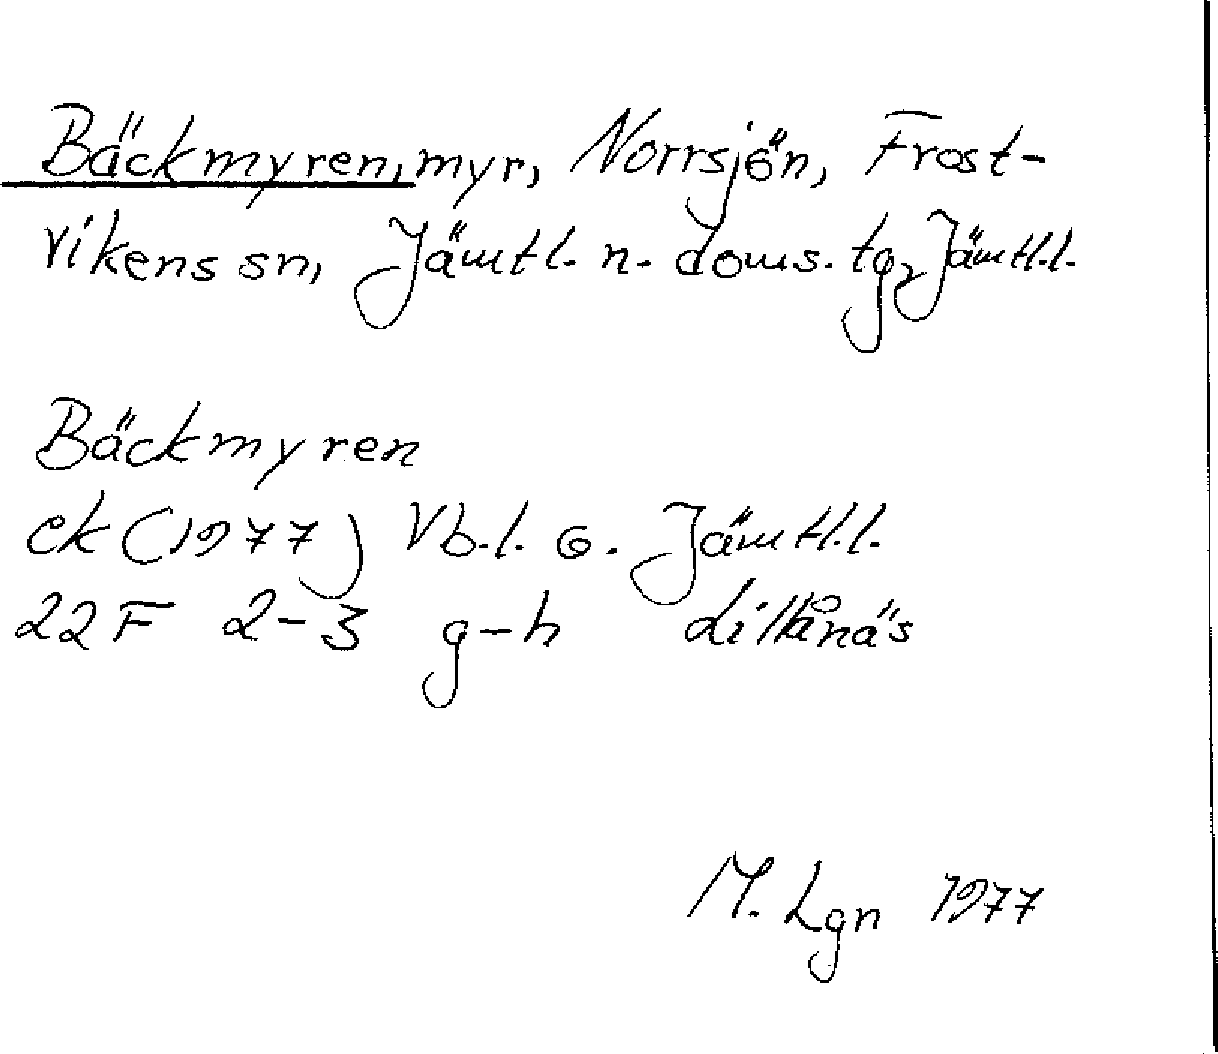 Bäckmyren, myr, Norrsjön, Frost-
vikens sn, Jämtl. n. doms. tg, Jämtl.l.
Bäckmyren
ek (1977) Vb.l. o. Jämtl.l.
22 F 2-3 g-h Lillånäs
M. Lgn 1977